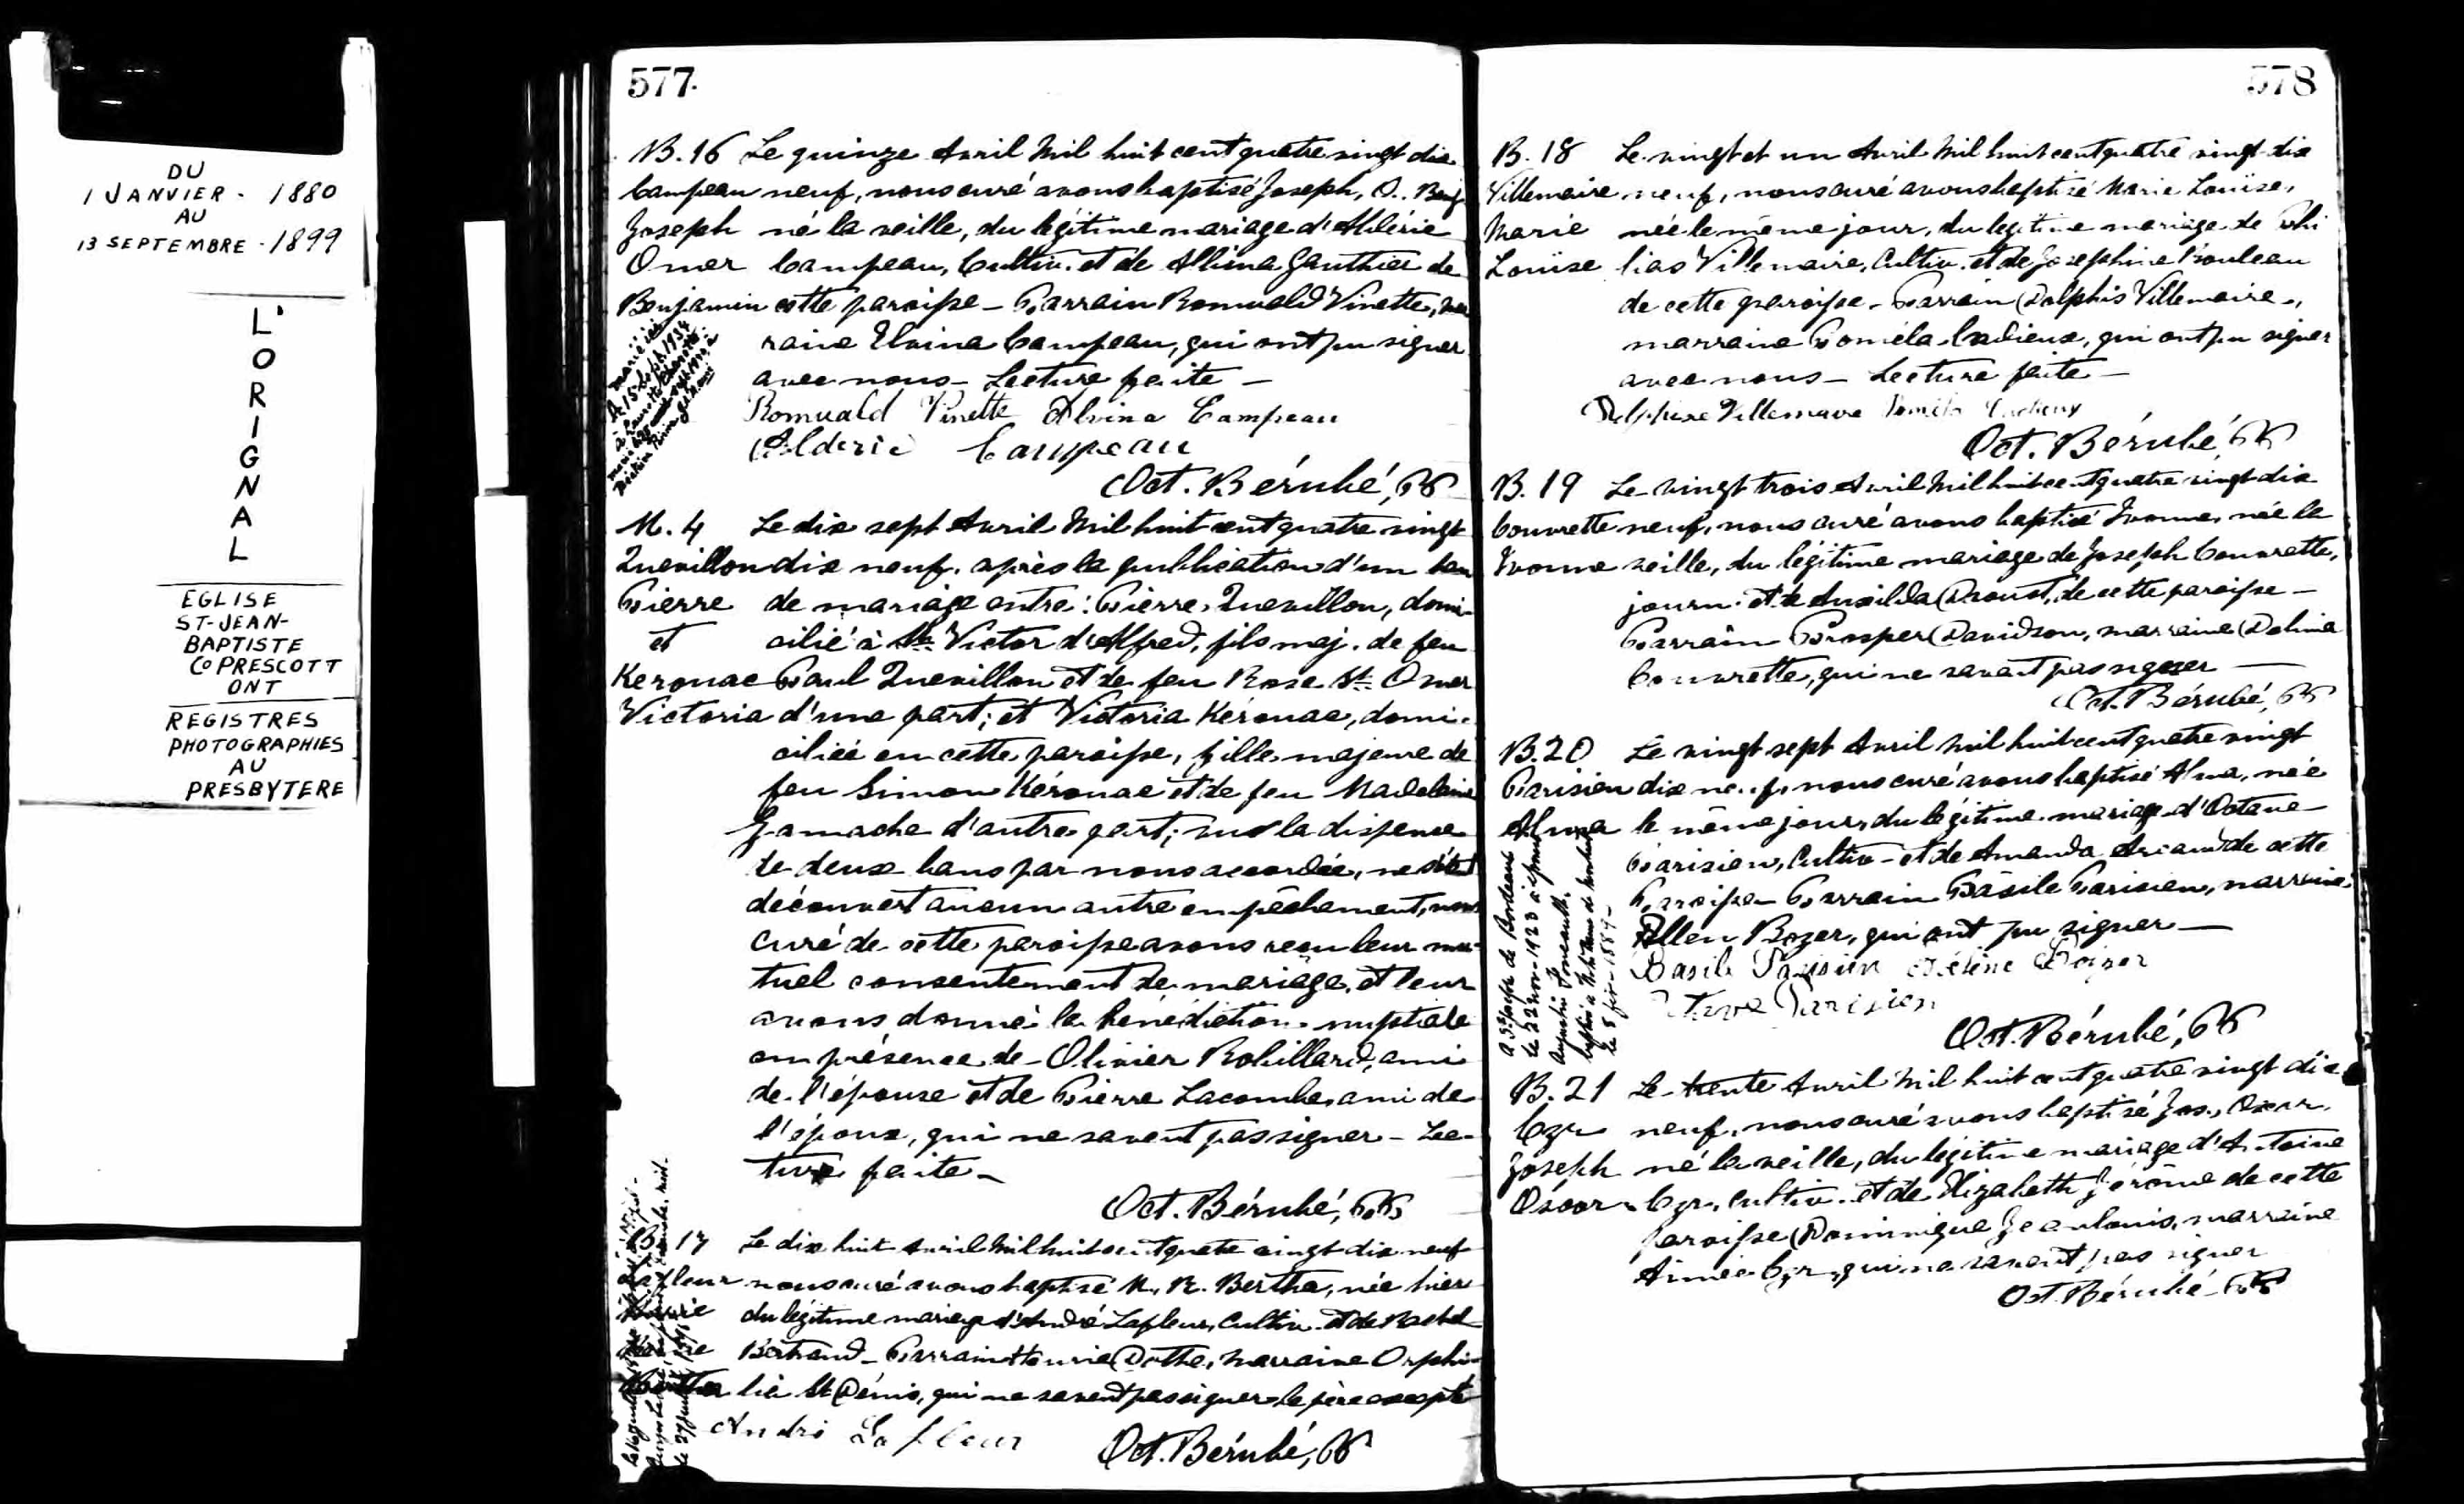 DU
1 JANVIER - 1880
AU
13 SEPTEMBRE - 1899
L'ORIGNAL
EGLISE
ST-JEAN-
BAPTISTE
Co PRESCOTT
ONT
REGISTRES
PHOTOGRAPHIES
AU
PRESBYTERE
577.
B. 16 Le quinze Avril Mil huit cent quatre vingt dix
Campeau neuf, nous curé avons baptisé Joseph, O. Benj
Joseph né la veille, du légitime mariage d'Aldéric
Omer Campeau, Cultiv. et de Albina Gauthier de
Benjamin cette paroisse - Parrain Romuald Vinette, mar
raine Elvina Campeau, qui ont pu signer
avec nous - Lecture faite -
Romuald Vinette Alvina Campeau
Alderic Campeau
Oct. Bérubé,
M. 4 Le dix sept Avril Mil huit cent quatre vingt
Quevillon dix neuf, après la publication d'un ban
Pierre de mariage entre : Pierre Quevillon, domi-
et cilié à St. Victor d'Alfred, fils maj. de feu
Kerouac Paul Quevillon et de feu Rose St. Omer
Victoria d'une part; et Victoria Kérouac, domi-
ciliée en cette paroisse, fille majeure de
feu Simon Kérouac et de feu Madeleine
Gamache d'autre part; vu la dispense
de deux bans par nous accordée, ne s'étant
découvert aucun autre empêchement, nous
Curé de cette paroisse avons reçu leur mu-
tuel consentement de mariage, et leur
avons donné la bénédiction nuptiale
en présence de Olivier Robillard, ami
de l'épouse et de Pierre Lacombe, ami de
l'époux, qui ne savent pas signer - Lec-
ture faite -
Oct. Bérubé,
B. 17 Le dix huit Avril Mil huit cent quatre vingt dix neuf
Lafleur nous curé avons baptisé M. R. Bertha, née hier
Marie du légitime mariage d'André Lafleur, Cultiv. et de Rachel
Bertrand - Parrain Henrie Dothe, Marraine Orphi-
Bertha lia St Dénis, qui ne savent pas signer, le père excepté
André Lafleur
Oct. Bérubé,
578
B. 18 Le vingt et un Avril Mil huit cent quatre vingt dix
Villemaire neuf, nous curé avons baptisé Marie Louise,
Marie née le même jour, du legitime mariage de
Louise Villemaire, Cultiv. et de Josephine Prouleau
de cette paroisse - Parrain Dolphis Villemaire,
marraine Poméla Cadieux, qui ont pu signer
avec nous - Lecture faite -
Villemaire
Oct. Bérubé,
B. 19 Le vingt trois Avril Mil huit cent quatre vingt dix
Couvrette neuf, nous curé avons baptisé Ivonne, née la
Ivonne veille, du légitime mariage de Joseph Couvrette,
journ. et de Anxilda Proust, de cette paroisse -
Parrain Prosper Davidson, marraine Delima
Couvrette, qui ne savent pas signer -
Oct. Bérubé,
B. 20 Le vingt sept Avril Mil huit cent quatre vingt
Parisien dix neuf, nous curé avons baptisé Alma, née
Alma le même jour, du légitime mariage d'Octave
Parisien, Cultiv - et de Amanda de cette
Paroisse Parrain Basile Parisien, marraine
Ellen Bozer, qui ont pu signer -
Basile Parisien
Octave Parisien
Oct. Bérubé,
B. 21 Le trente Avril Mil huit cent quatre vingt dix
Cyr neuf, nous curé avons baptisé Jos., Oscar,
Joseph né la veille, du légitime mariage d'Antoine
Oscar Cyr, Cultiv. et de Elizabeth Jérôme de cette
paroisse Dominique Jeanlouis, marraine
Aimée Cyr, qui ne savent pas signer
Oct. Bérubé